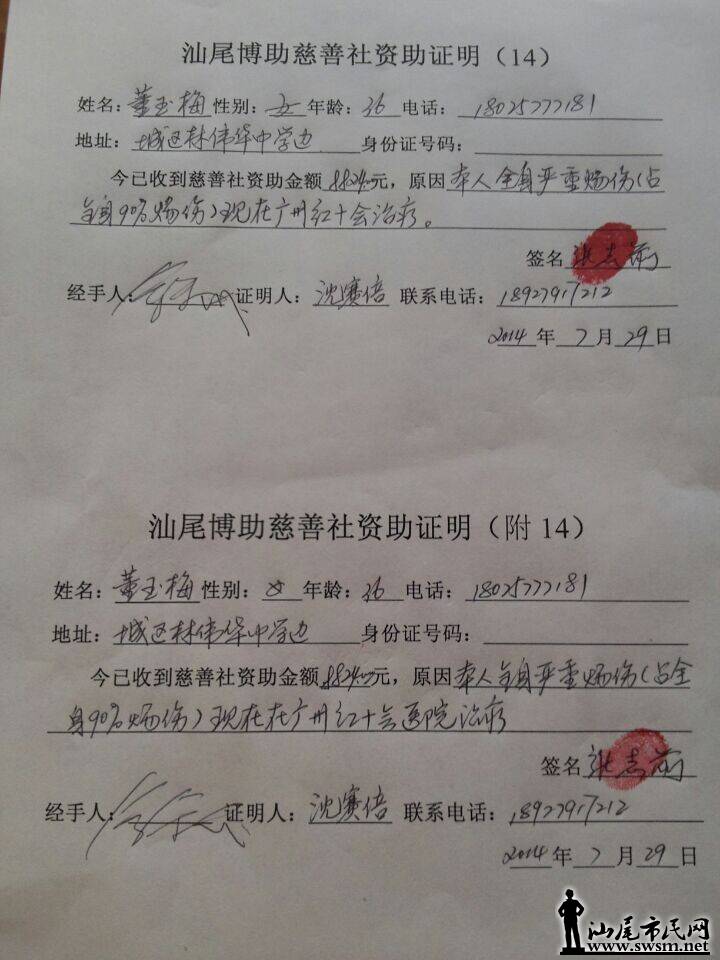 汕尾博助慈善社资助证明（14）
姓名：董玉梅 性别：女 年龄：36 电话：18025777181
地址：城区林伟华中学边 身份证号码：
今已收到慈善社资助金额 元，原因 本人全身严重烫伤（占
全身90%烫伤）现在广州红十会治疗。
签名 张志
经手人： 证明人：沈赛倍 联系电话：18927917212
2014年7月29日
汕尾博助慈善社资助证明（附14）
姓名：董玉梅 性别：女 年龄：36 电话：18025777181
地址：城区林伟华中学边 身份证号码：
今已收到慈善社资助金额 元，原因 本人全身严重烫伤（占全
身90%烫伤）现在在广州红十会医院治疗
签名 张志
经手人： 证明人：沈赛倍 联系电话：18927917212
2014年7月29日
汕尾市民网
www.swsm.net